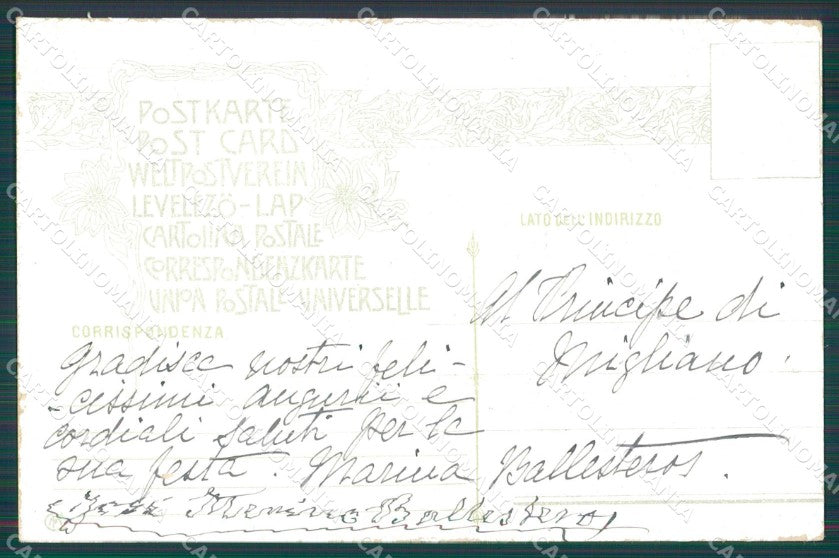 POSTKARTE
POST CARD
WELTPOSTVEREIN
LEVELEZŐ-LAP
CARTOLINA POSTALE
CORRESPONDENZKARTE
UNION POSTALE UNIVERSELLE
CORRISPONDENZA
Gradisca nostri feli-
-cissimi augurii e
cordiali saluti per la
sua festa. Marina Ballesteros.
e José Menino Ballesteros
LATO DELL'INDIRIZZO
Al Principe di
Migliano.
CARTOLINOMANIA